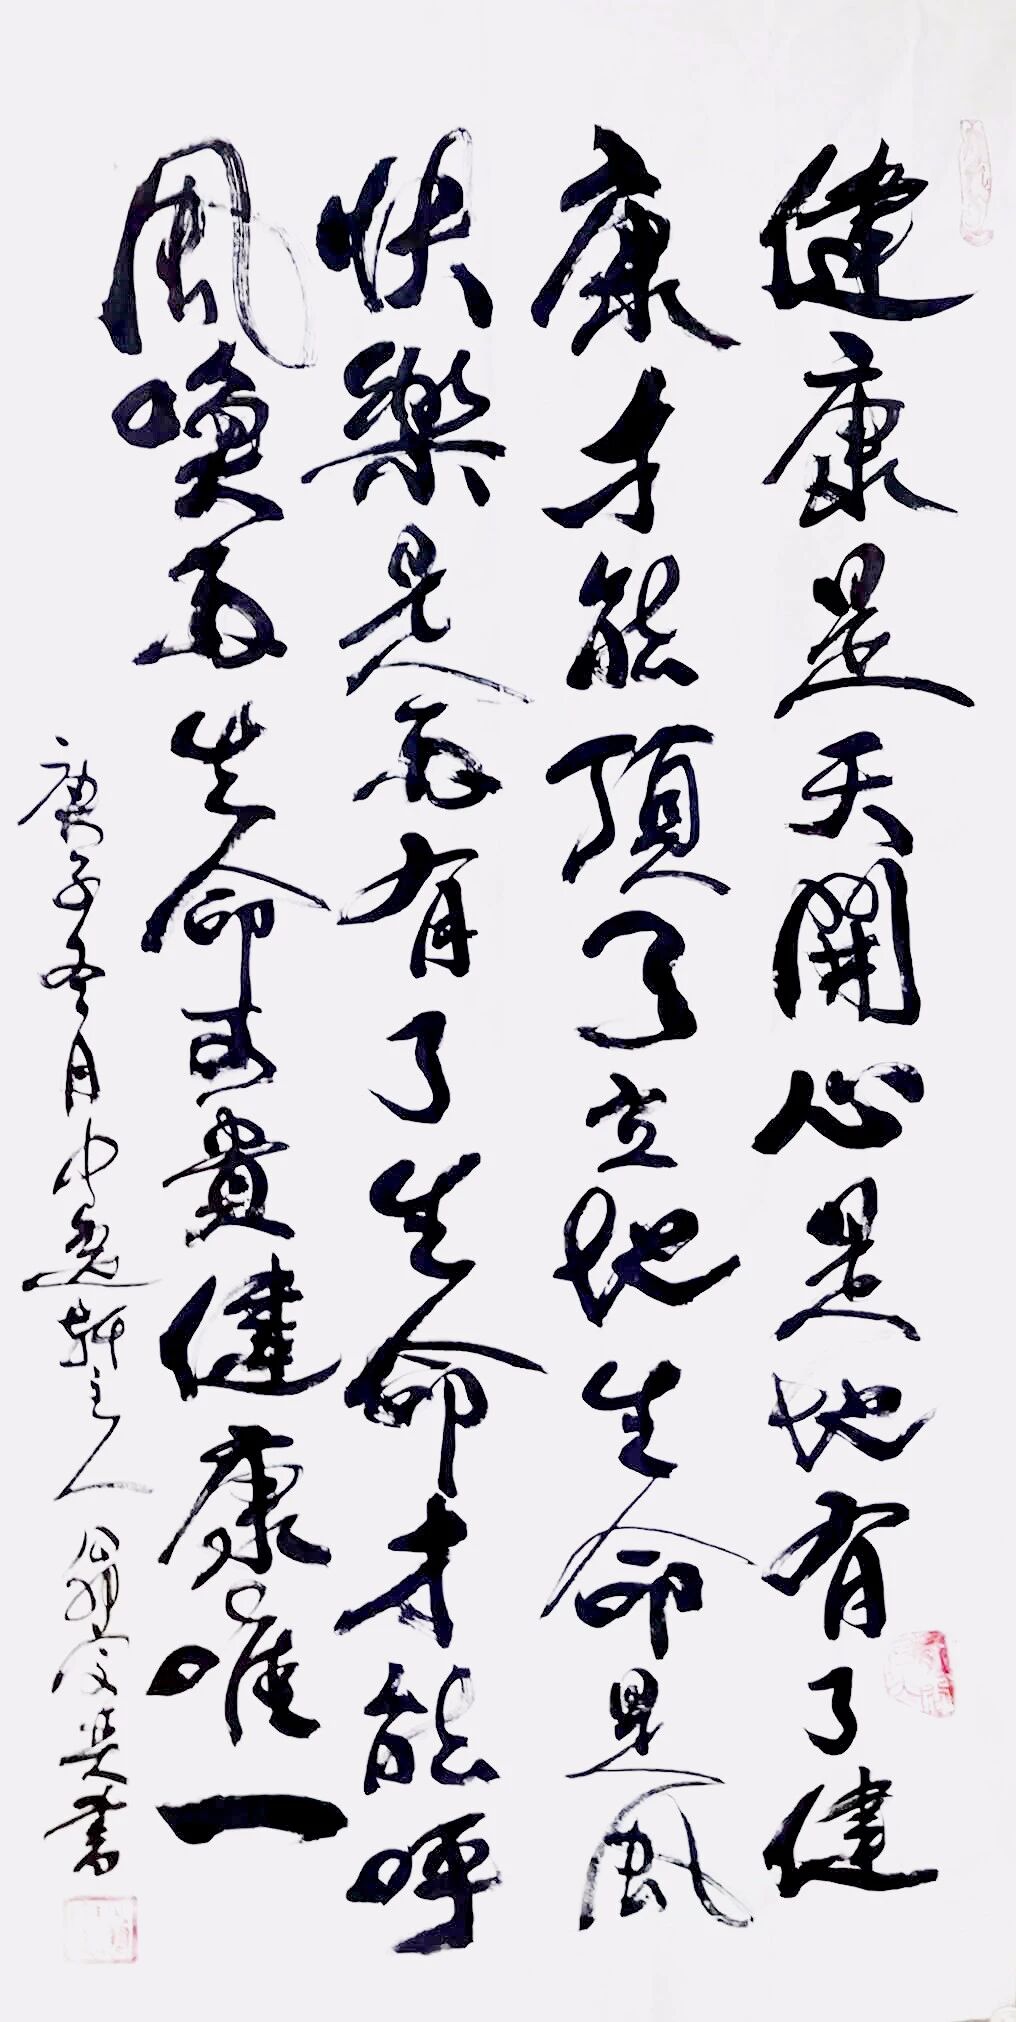 健康是天開心是地有了健
康才能頂了立地生命是風
快樂是雨有了生命才能呼
風喚雨生命可貴健康唯一
庚子冬月中逸軒主人翁文英書